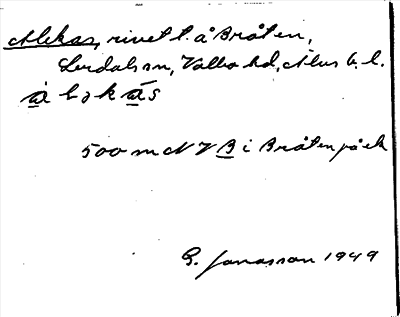 Alekas, rivet t. å Bråten,
Lerdals sn, Valbo hd, Älvs b. l.
a b o k a s
500 m N V B i Bråten på ek
G. Jonasson 1949